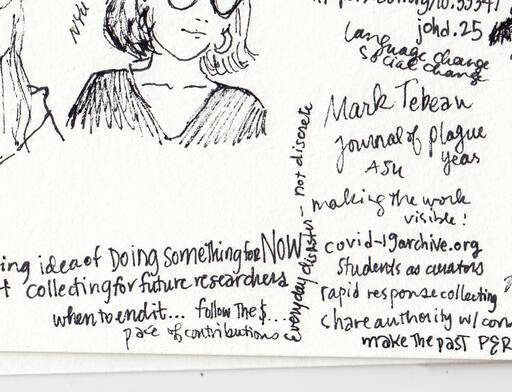 NYU
johd.25
Language change
social change
Mark Tebeau
journal of plague
year
ASU
making the work
visible!
covid-19archive.org
students as curators
rapid response collecting
share authority w/ com
make the past PER
Everyday disaster - not discrete
ing idea of Doing something for NOW
collecting for future researchers
when to end it... follow the $...
pace of contributions